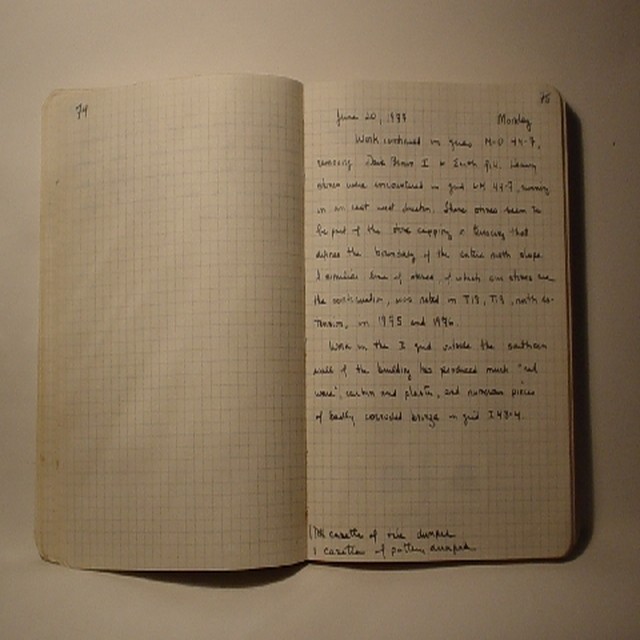 74
75
June 20, 1977 Monday
Work continued in grids M-O 44-7,
removing Dark Brown I to Earth
stones were encountered in grid 44-7, running
in an east west direction. These stones seem to
be part of the stone capping or terracing that
defines the boundary of the entire north slope.
A similar line of stones, of which our stones are
the continuation, was noted in T18, T19, north ex-
tension, in 1975 and 1976.
Work in the I grid outside the southern
wall of the building has produced much "red
ware", carbon and plaster, and numerous pieces
of badly corroded bronze in grid I 48-4.
cassette of tile dumped
1 cassetta of pottery dumped